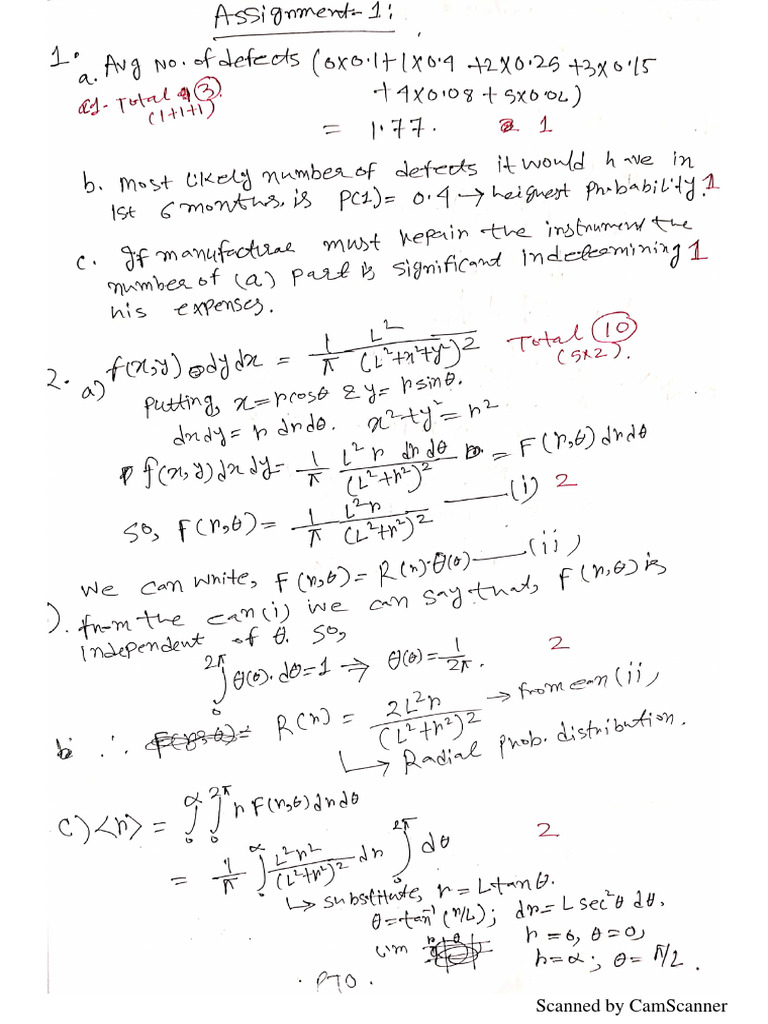 Assignment-1:
1. a. Avg No. of defects (0x0.1+1x0.4 +2x0.25 +3x0.15
Total 3
(1+1+1)
+4x0.08 + 5x0.02)
= 1.77. 1
b. Most likely number of defects it would have in
1st 6 months, is P(1) = 0.4 → heighest probability. 1
c. If manufacturae must repair the instrument the
number of (a) part is significant in determining 1
his expenses.
2. a) f(x,y) dydx = 1/π L²/(L²+x²+y²)² Total 10
(5x2).
putting, x=rcosθ & y= rsinθ.
dxdy= r drdθ. x²+y²= r²
f(x,y)dxdy= 1/π L² r dr dθ/(L²+r²)² = F(r,θ) drdθ
so, F(r,θ) = 1/π L²r/(L²+r²)² —(i) 2
we can write, F(r,θ) = R(r)·θ(θ) —(ii)
). from the eqn(i) we can say that, F(r,θ) is
independent of θ. so,
∫₀^2π θ(θ). dθ=1 ⇒ θ(θ) = 1/2π. 2
b ∴ R(r) = 2L²r/(L²+r²)² → from eqn(ii)
↳ Radial prob. distribution.
c) <r> = ∫₀^α ∫₀^2π r F(r,θ) drdθ
= 1/π ∫₀^α L²r²/(L²+r²)² dr ∫₀^2π dθ 2
↳ substitute, r = Ltanθ.
θ=tan⁻¹(r/L); dr= L sec²θ dθ.
lim r=0, θ=0,
r=α; θ= π/2.
. PTO.
Scanned by CamScanner